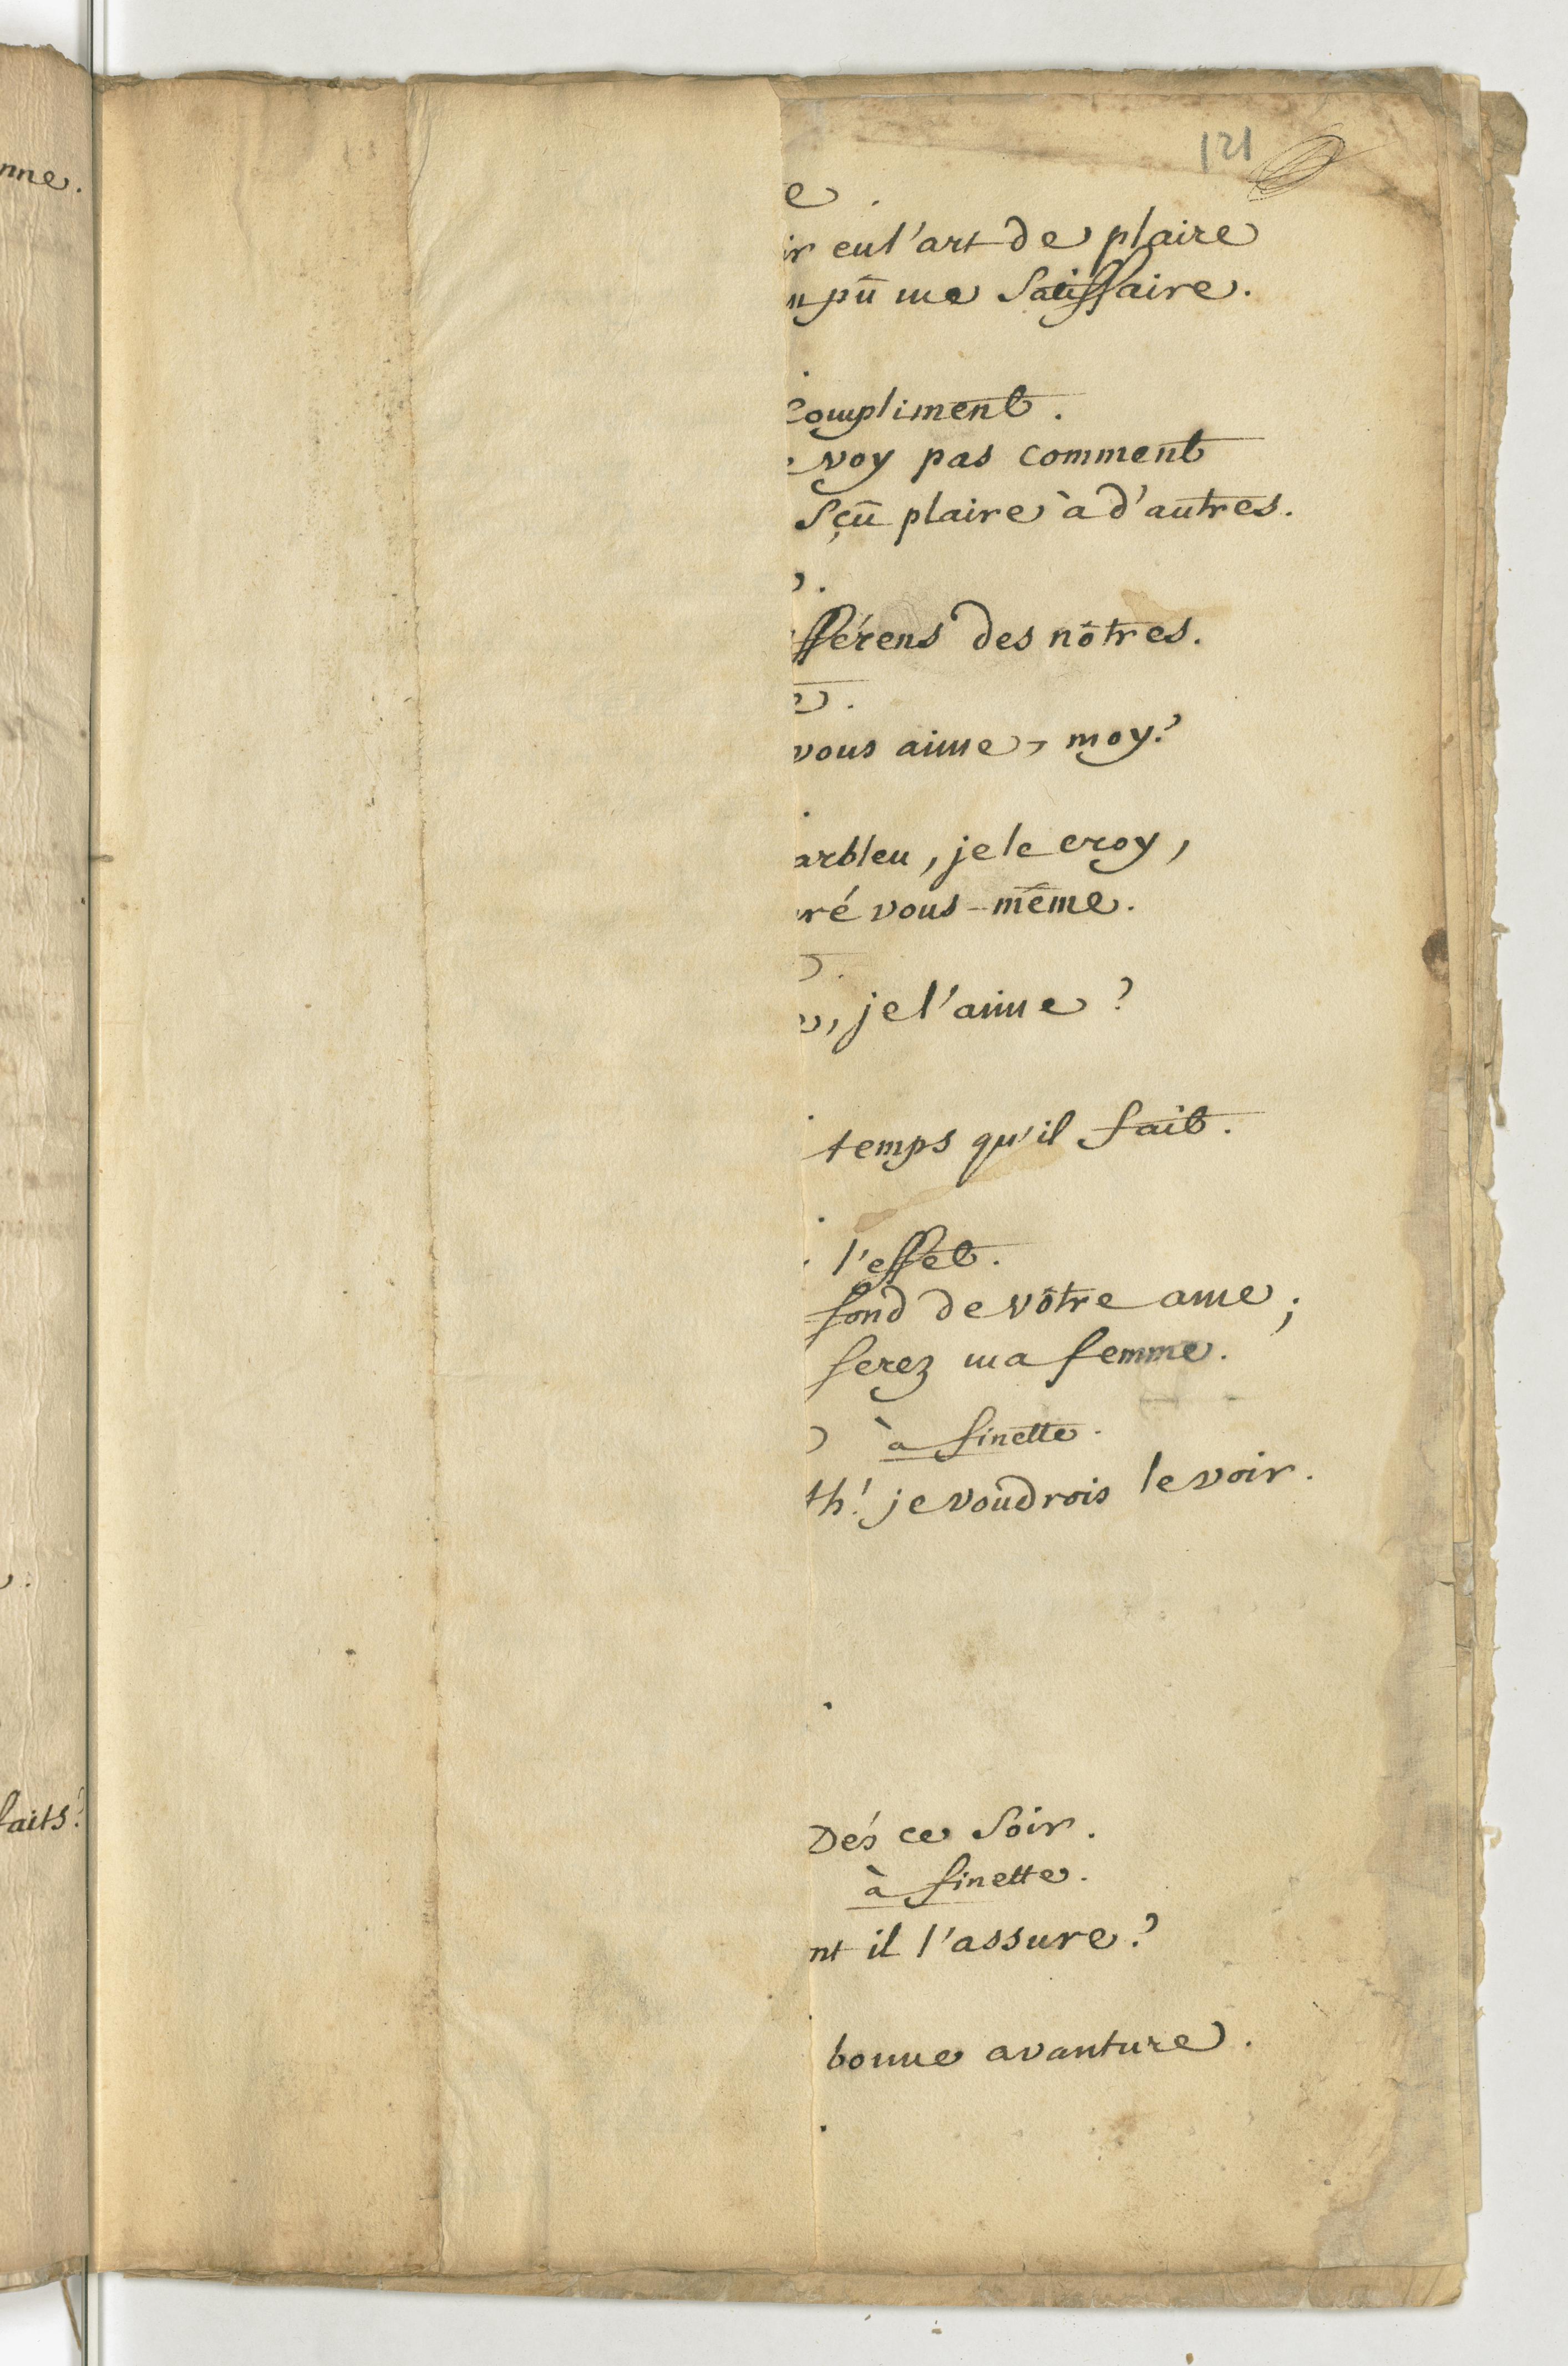 nne.
faits?
121
e.
ir eu l'art de plaire
n pû me satisfaire.
compliment.
voy pas comment
sçû plaire à d'autres.
fférens des nôtres.
vous aime, moy?
arbleu, je le croy,
ré vous-même.
, je l'aime?
temps qu'il fait.
l'effet.
fond de vôtre ame;
serez ma femme.
à finette.
th! je voudrois le voir.
Dés ce soir.
à finette.
nt il l'assure?
bonne avanture.